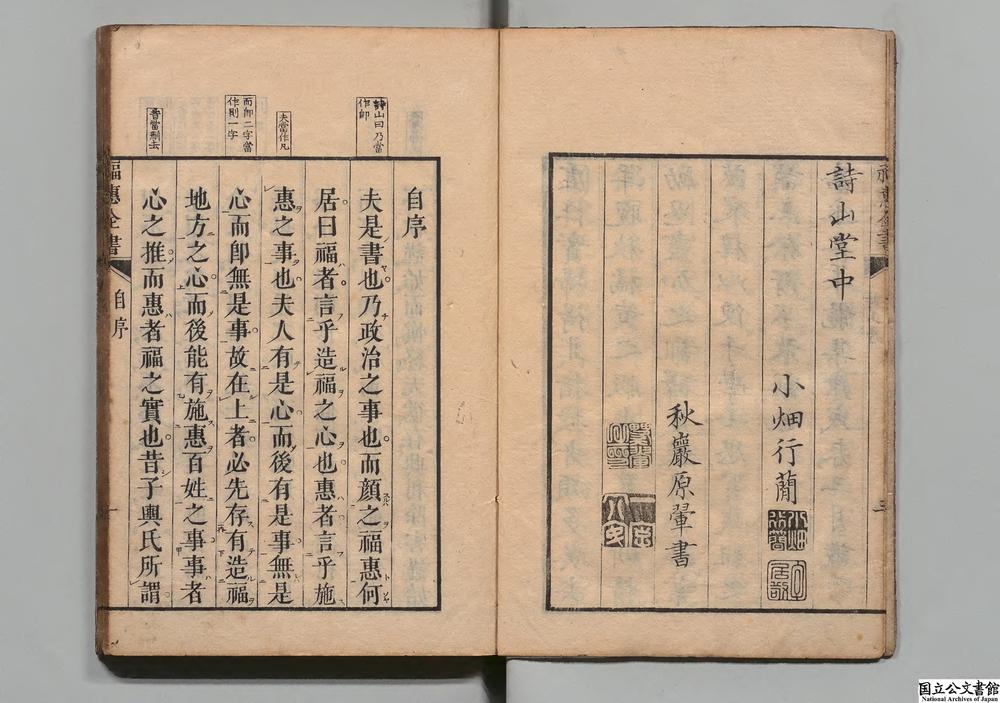 詩山堂中
小畑行蕑
秋巖原翬書
三
福惠全書
自序
詩山曰乃當
作即
夫當作凡
而卽二字當
作則一字
昔當刪去
自序
夫是書也乃政治之事也而顏之福惠何
居曰福者言乎造福之心也惠者言乎施
惠之事也夫人有是心而後有是事無是
心而卽無是事故在上者必先存有造福
地方之心而後能有施惠百姓之事事者
心之推而惠者福之實也昔子輿氏所謂
国立公文書館
National Archives of Japan